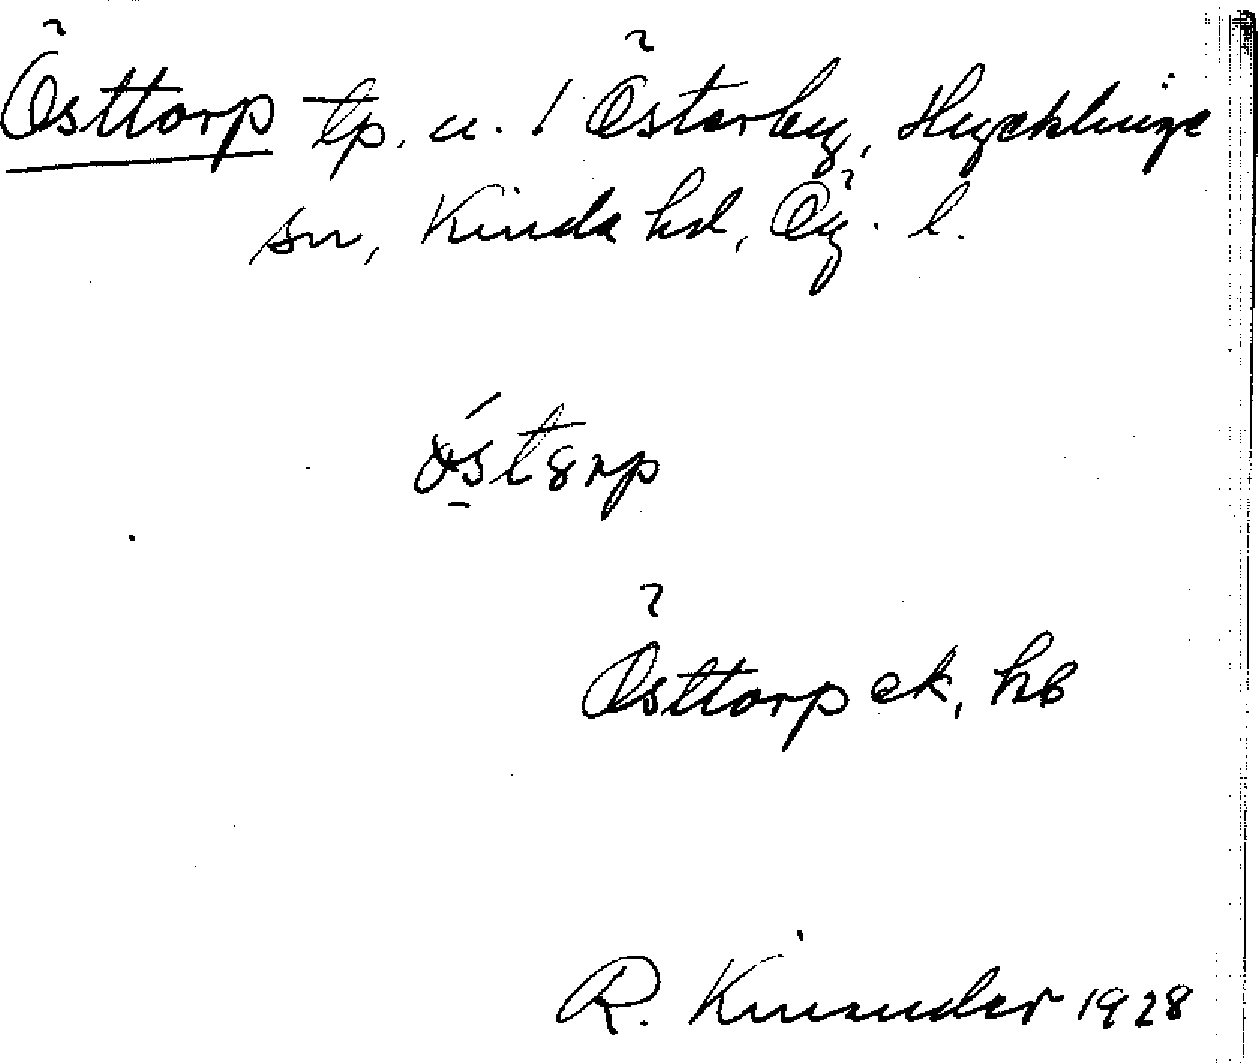 Östtorp tp. u. / Österby, Hycklinge
sn, Kinda hd, Ög. l.
Östtorp ek, hb
R. Kinander 1928